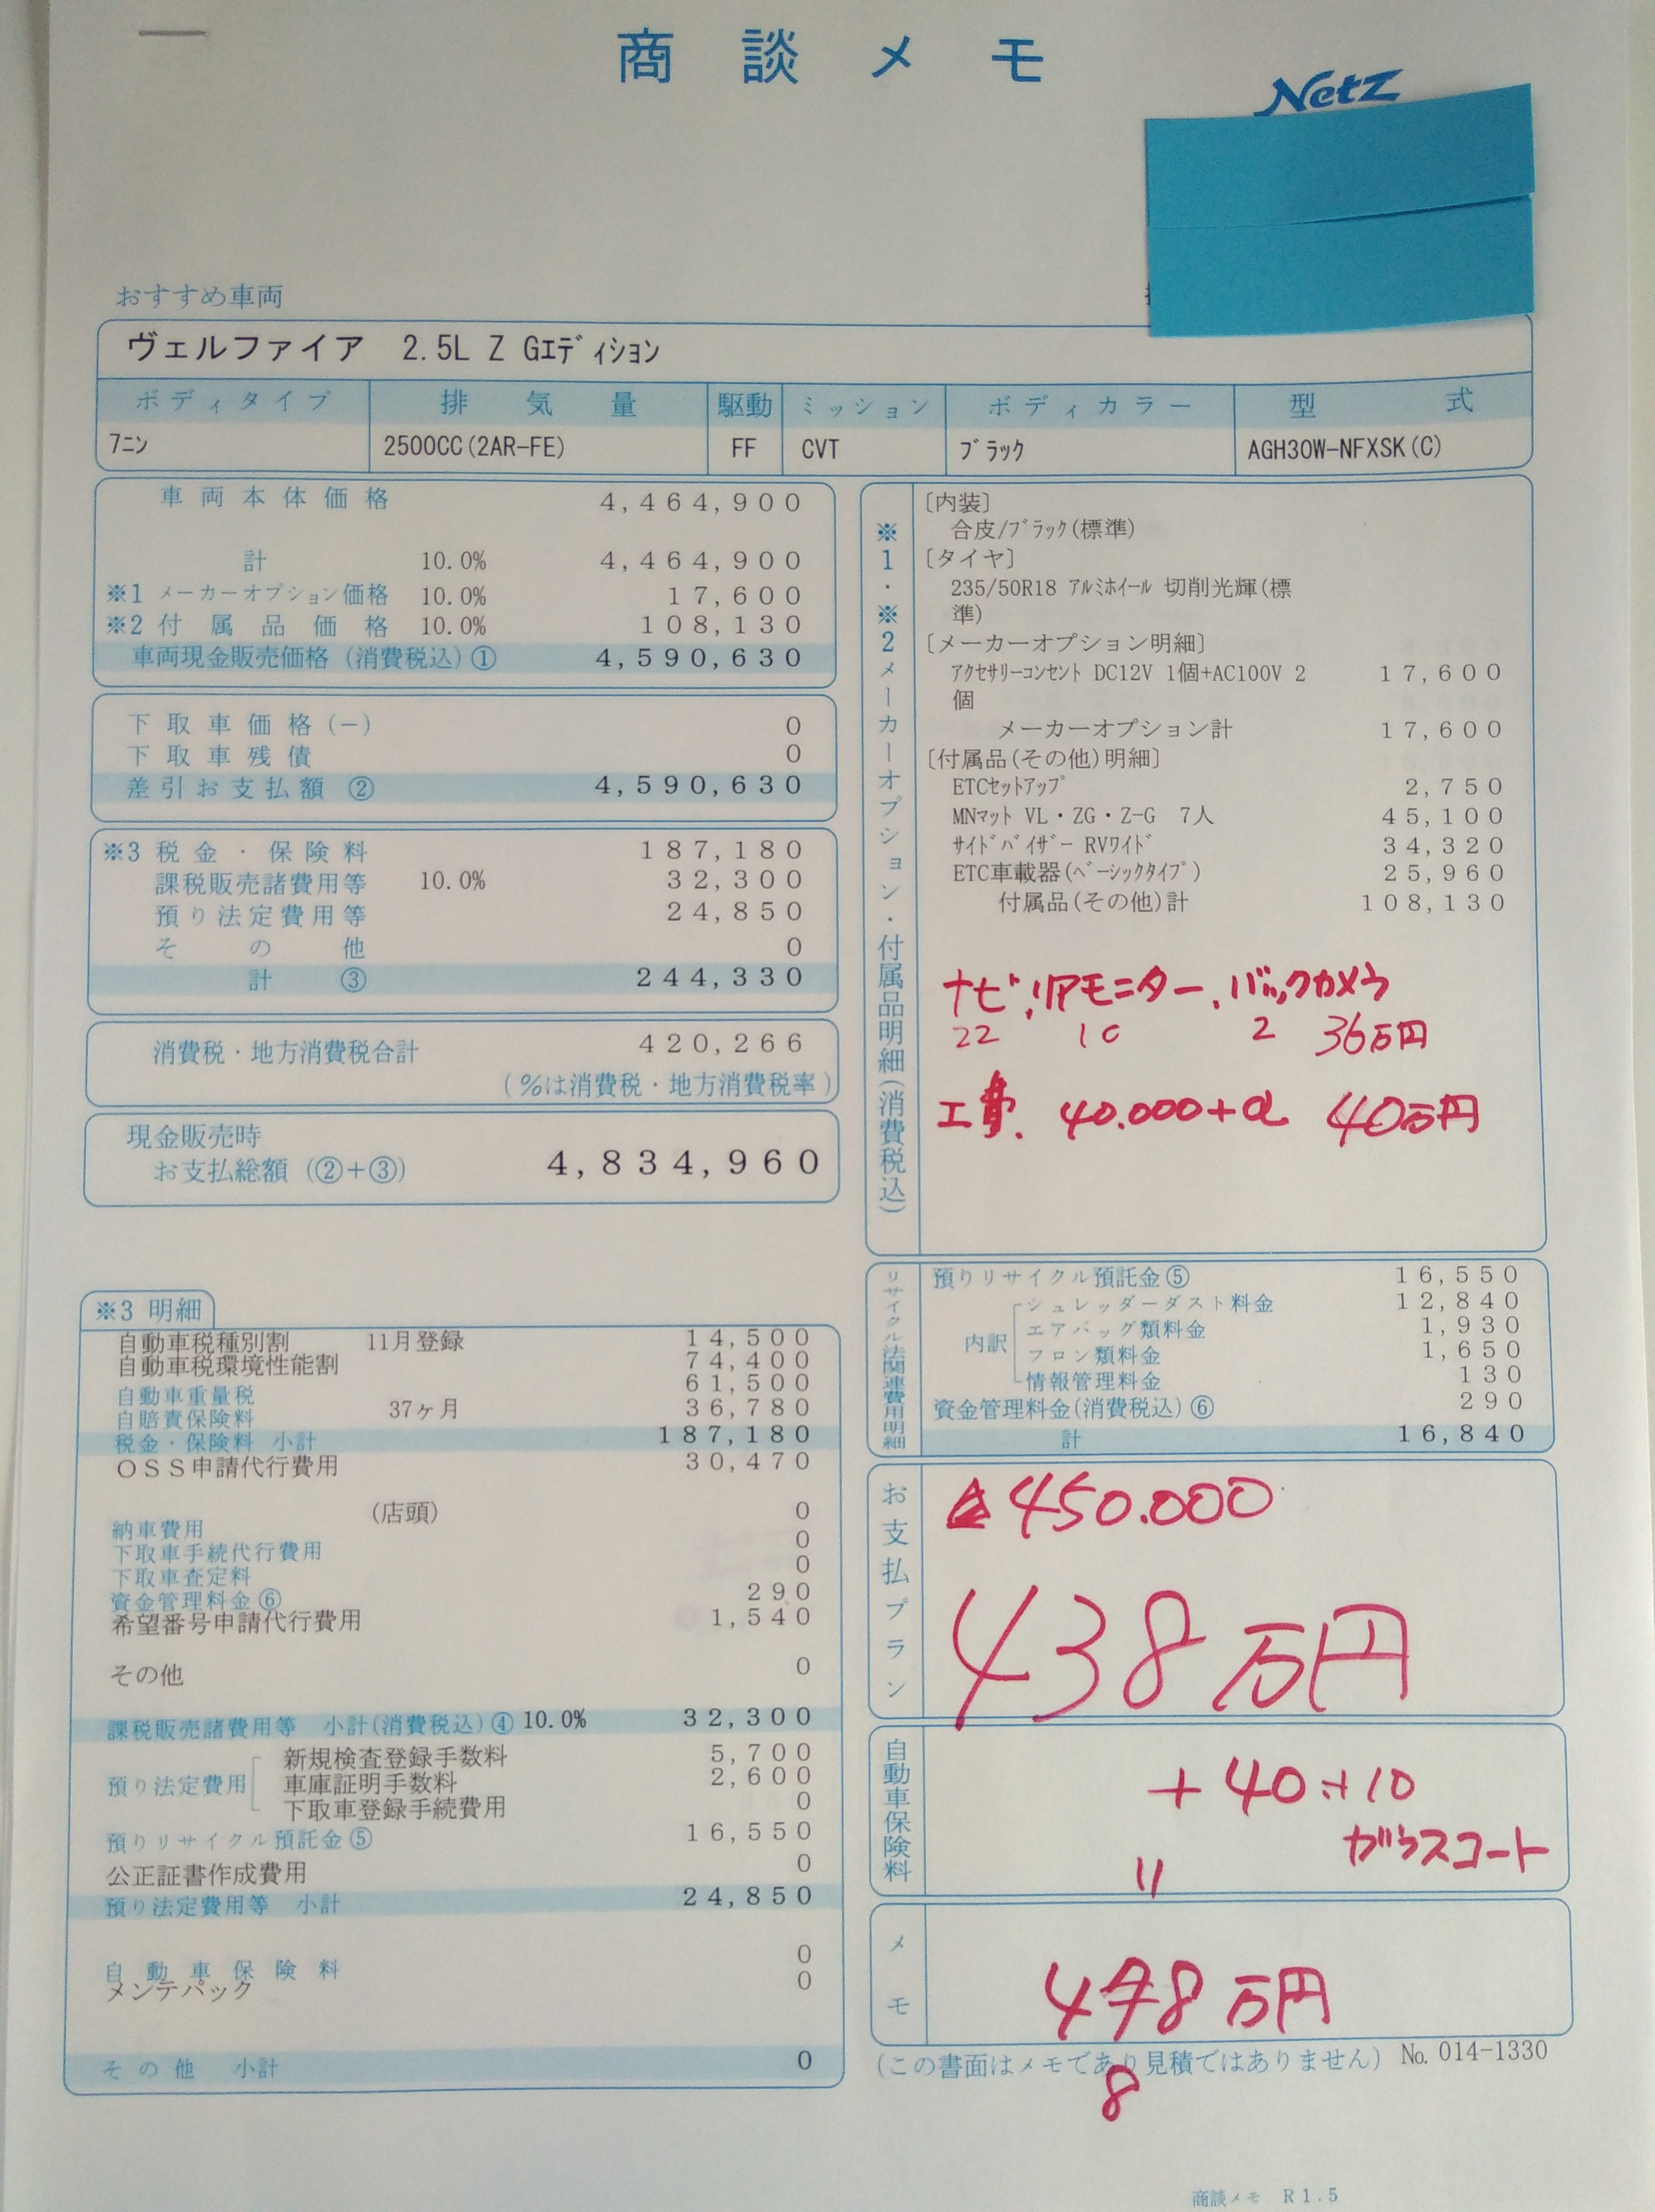 商談メモ
NetZ
おすすめ車両
ヴェルファイア 2.5L Z Gｴﾃﾞｨｼｮﾝ
ボディタイプ 排気量 駆動 ミッション ボディカラー 型式
7ﾆﾝ 2500CC(2AR-FE) FF CVT ﾌﾞﾗｯｸ AGH30W-NFXSK(C)
車両本体価格 4,464,900
計 10.0% 4,464,900
※1 メーカーオプション価格 10.0% 17,600
※2 付属品価格 10.0% 108,130
車両現金販売価格(消費税込)① 4,590,630
下取車価格(−) 0
下取車残債 0
差引お支払額 ② 4,590,630
※3 税金・保険料 187,180
課税販売諸費用等 10.0% 32,300
預り法定費用等 24,850
その他 0
計 ③ 244,330
消費税・地方消費税合計 420,266
(％は消費税・地方消費税率)
現金販売時
お支払総額 (②+③) 4,834,960
※3 明細
自動車税種別割 11月登録 14,500
自動車税環境性能割 74,400
自動車重量税 61,500
自賠責保険料 37ヶ月 36,780
税金・保険料 小計 187,180
OSS申請代行費用 30,470
(店頭)
納車費用 0
下取車手続代行費用 0
下取車査定料 0
資金管理料金⑥ 290
希望番号申請代行費用 1,540
その他 0
課税販売諸費用等 小計(消費税込)④ 10.0% 32,300
預り法定費用
新規検査登録手数料 5,700
車庫証明手数料 2,600
下取車登録手続費用 0
預りリサイクル預託金⑤ 16,550
公正証書作成費用 0
預り法定費用等 小計 24,850
自動車保険料 0
メンテパック 0
その他 小計 0
※1・※2メーカーオプション・付属品明細(消費税込)
〔内装〕
合皮/ﾌﾞﾗｯｸ(標準)
〔タイヤ〕
235/50R18 ｱﾙﾐﾎｲｰﾙ 切削光輝(標
準)
〔メーカーオプション明細〕
ｱｸｾｻﾘｰｺﾝｾﾝﾄ DC12V 1個+AC100V 2 17,600
個
メーカーオプション計 17,600
〔付属品(その他)明細〕
ETCｾｯﾄｱｯﾌﾟ 2,750
MNﾏｯﾄ VL・ZG・Z-G 7人 45,100
ｻｲﾄﾞﾊﾞｲｻﾞｰ RVﾜｲﾄﾞ 34,320
ETC車載器(ﾍﾞｰｼｯｸﾀｲﾌﾟ) 25,960
付属品(その他)計 108,130
ナビ.リアモニター.バックカメラ
22 10 2 36万円
工費. 40.000+α 40万円
リサイクル法関連費用明細
預りリサイクル預託金⑤ 16,550
内訳
シュレッダーダスト料金 12,840
エアバッグ類料金 1,930
フロン類料金 1,650
情報管理料金 130
資金管理料金(消費税込)⑥ 290
計 16,840
お支払プラン
△450.000
438万円
自動車保険料
+40.+10
ガラスコート
〃
メモ
478万円
8
(この書面はメモであり見積ではありません) No. 014-1330
商談メモ R1.5